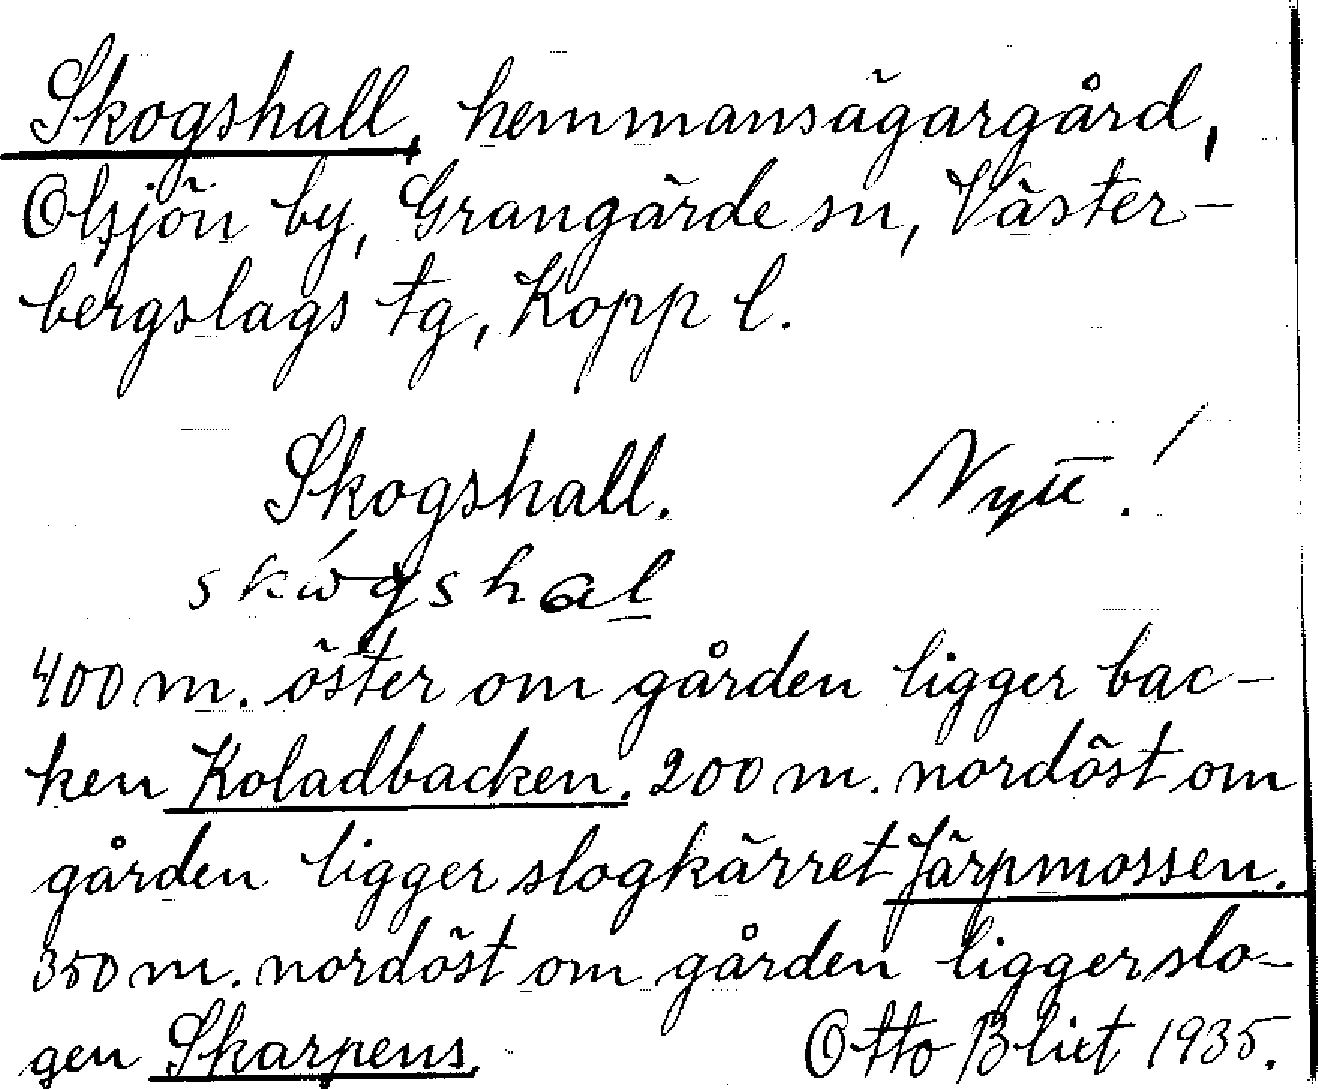 Skogshall, hemmansägargård,
Olsjön by, Grangärde sn, Väster-
bergslags tg, Kopp l.
Skogshall. Nytt!
skógshal
400 m. öster om gården ligger bac-
ken Koladbacken. 200 m. nordöst om
gården ligger slogkärret Järpmossen.
350 m. nordöst om gården ligger slo-
gen Skarpens. Otto Blixt 1935.